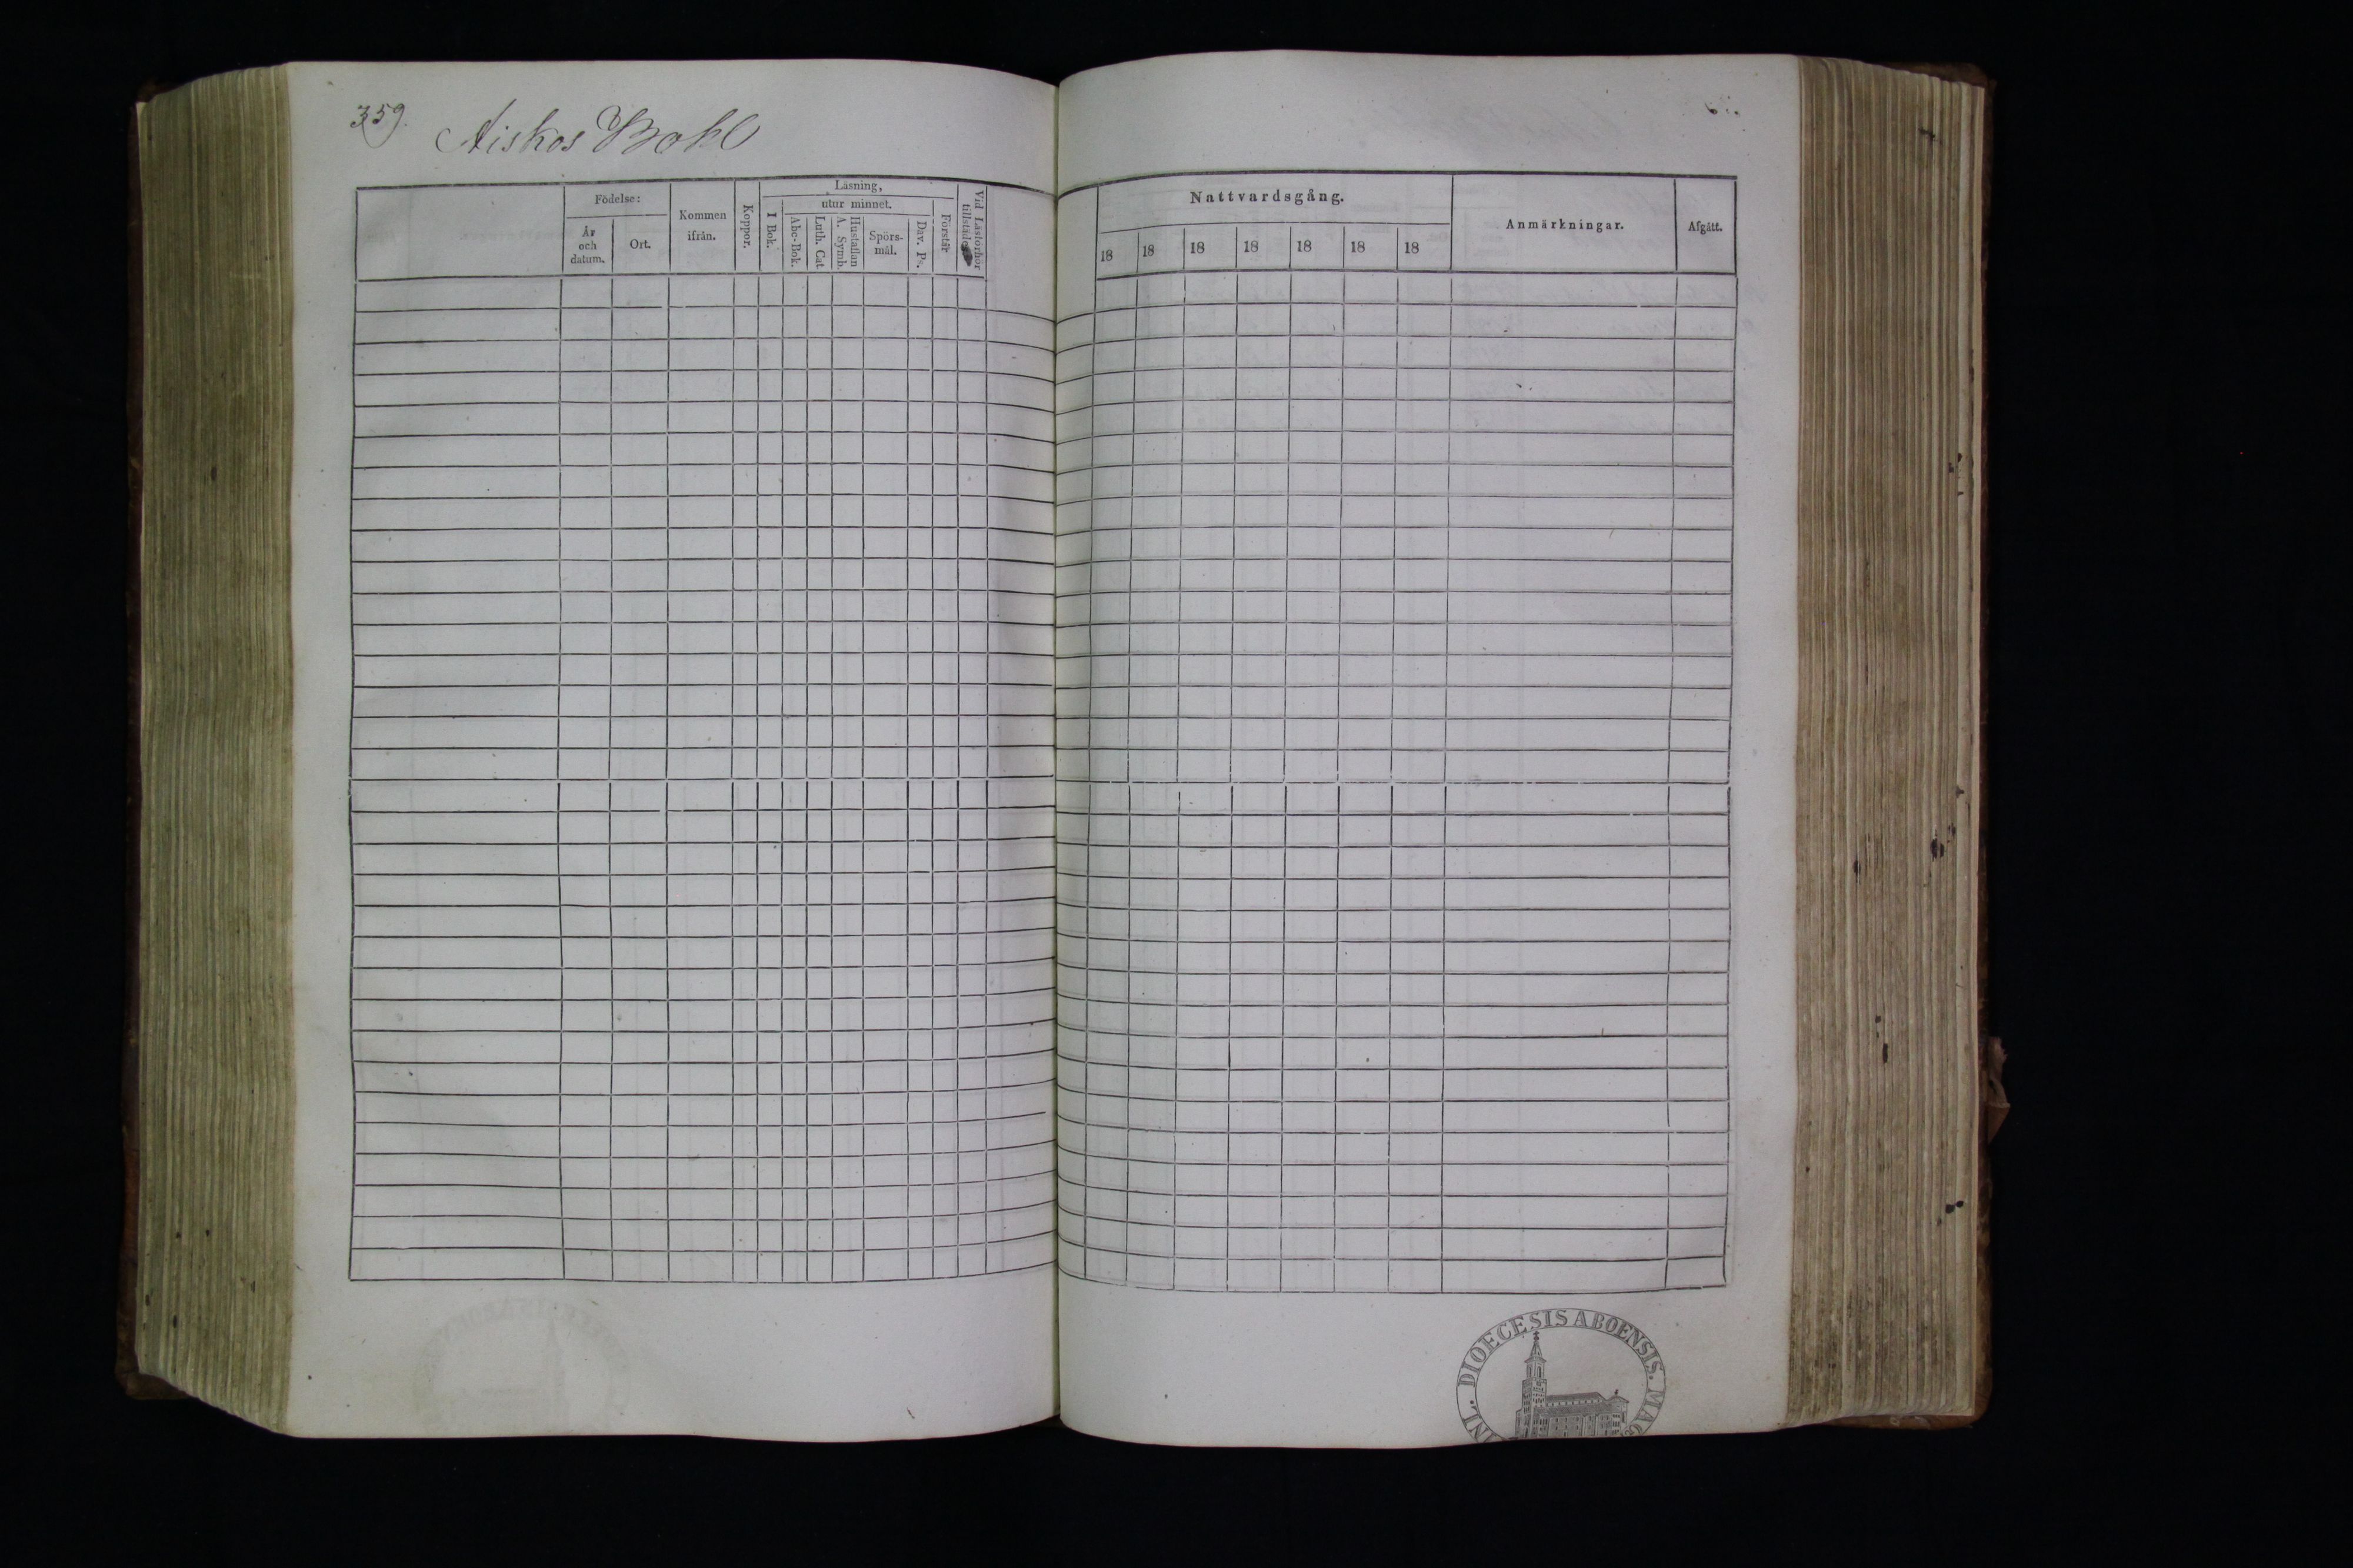 359.
Aiskos Bohl
Födelse:
År och datum.
Ort.
Kommen ifrån.
Koppor.
Läsning,
utur minnet.
I Bok.
Abc-Bok.
Luth. Cat.
Hustaflan A. Symb.
Spörs-mål.
Dav. Ps.
Förstår
Vid Läsförhör
Nattvardsgång.
18 18 18 18 18 18 18
Anmärkningar.
Afgått.
DIOECESIS ABOENSIS.